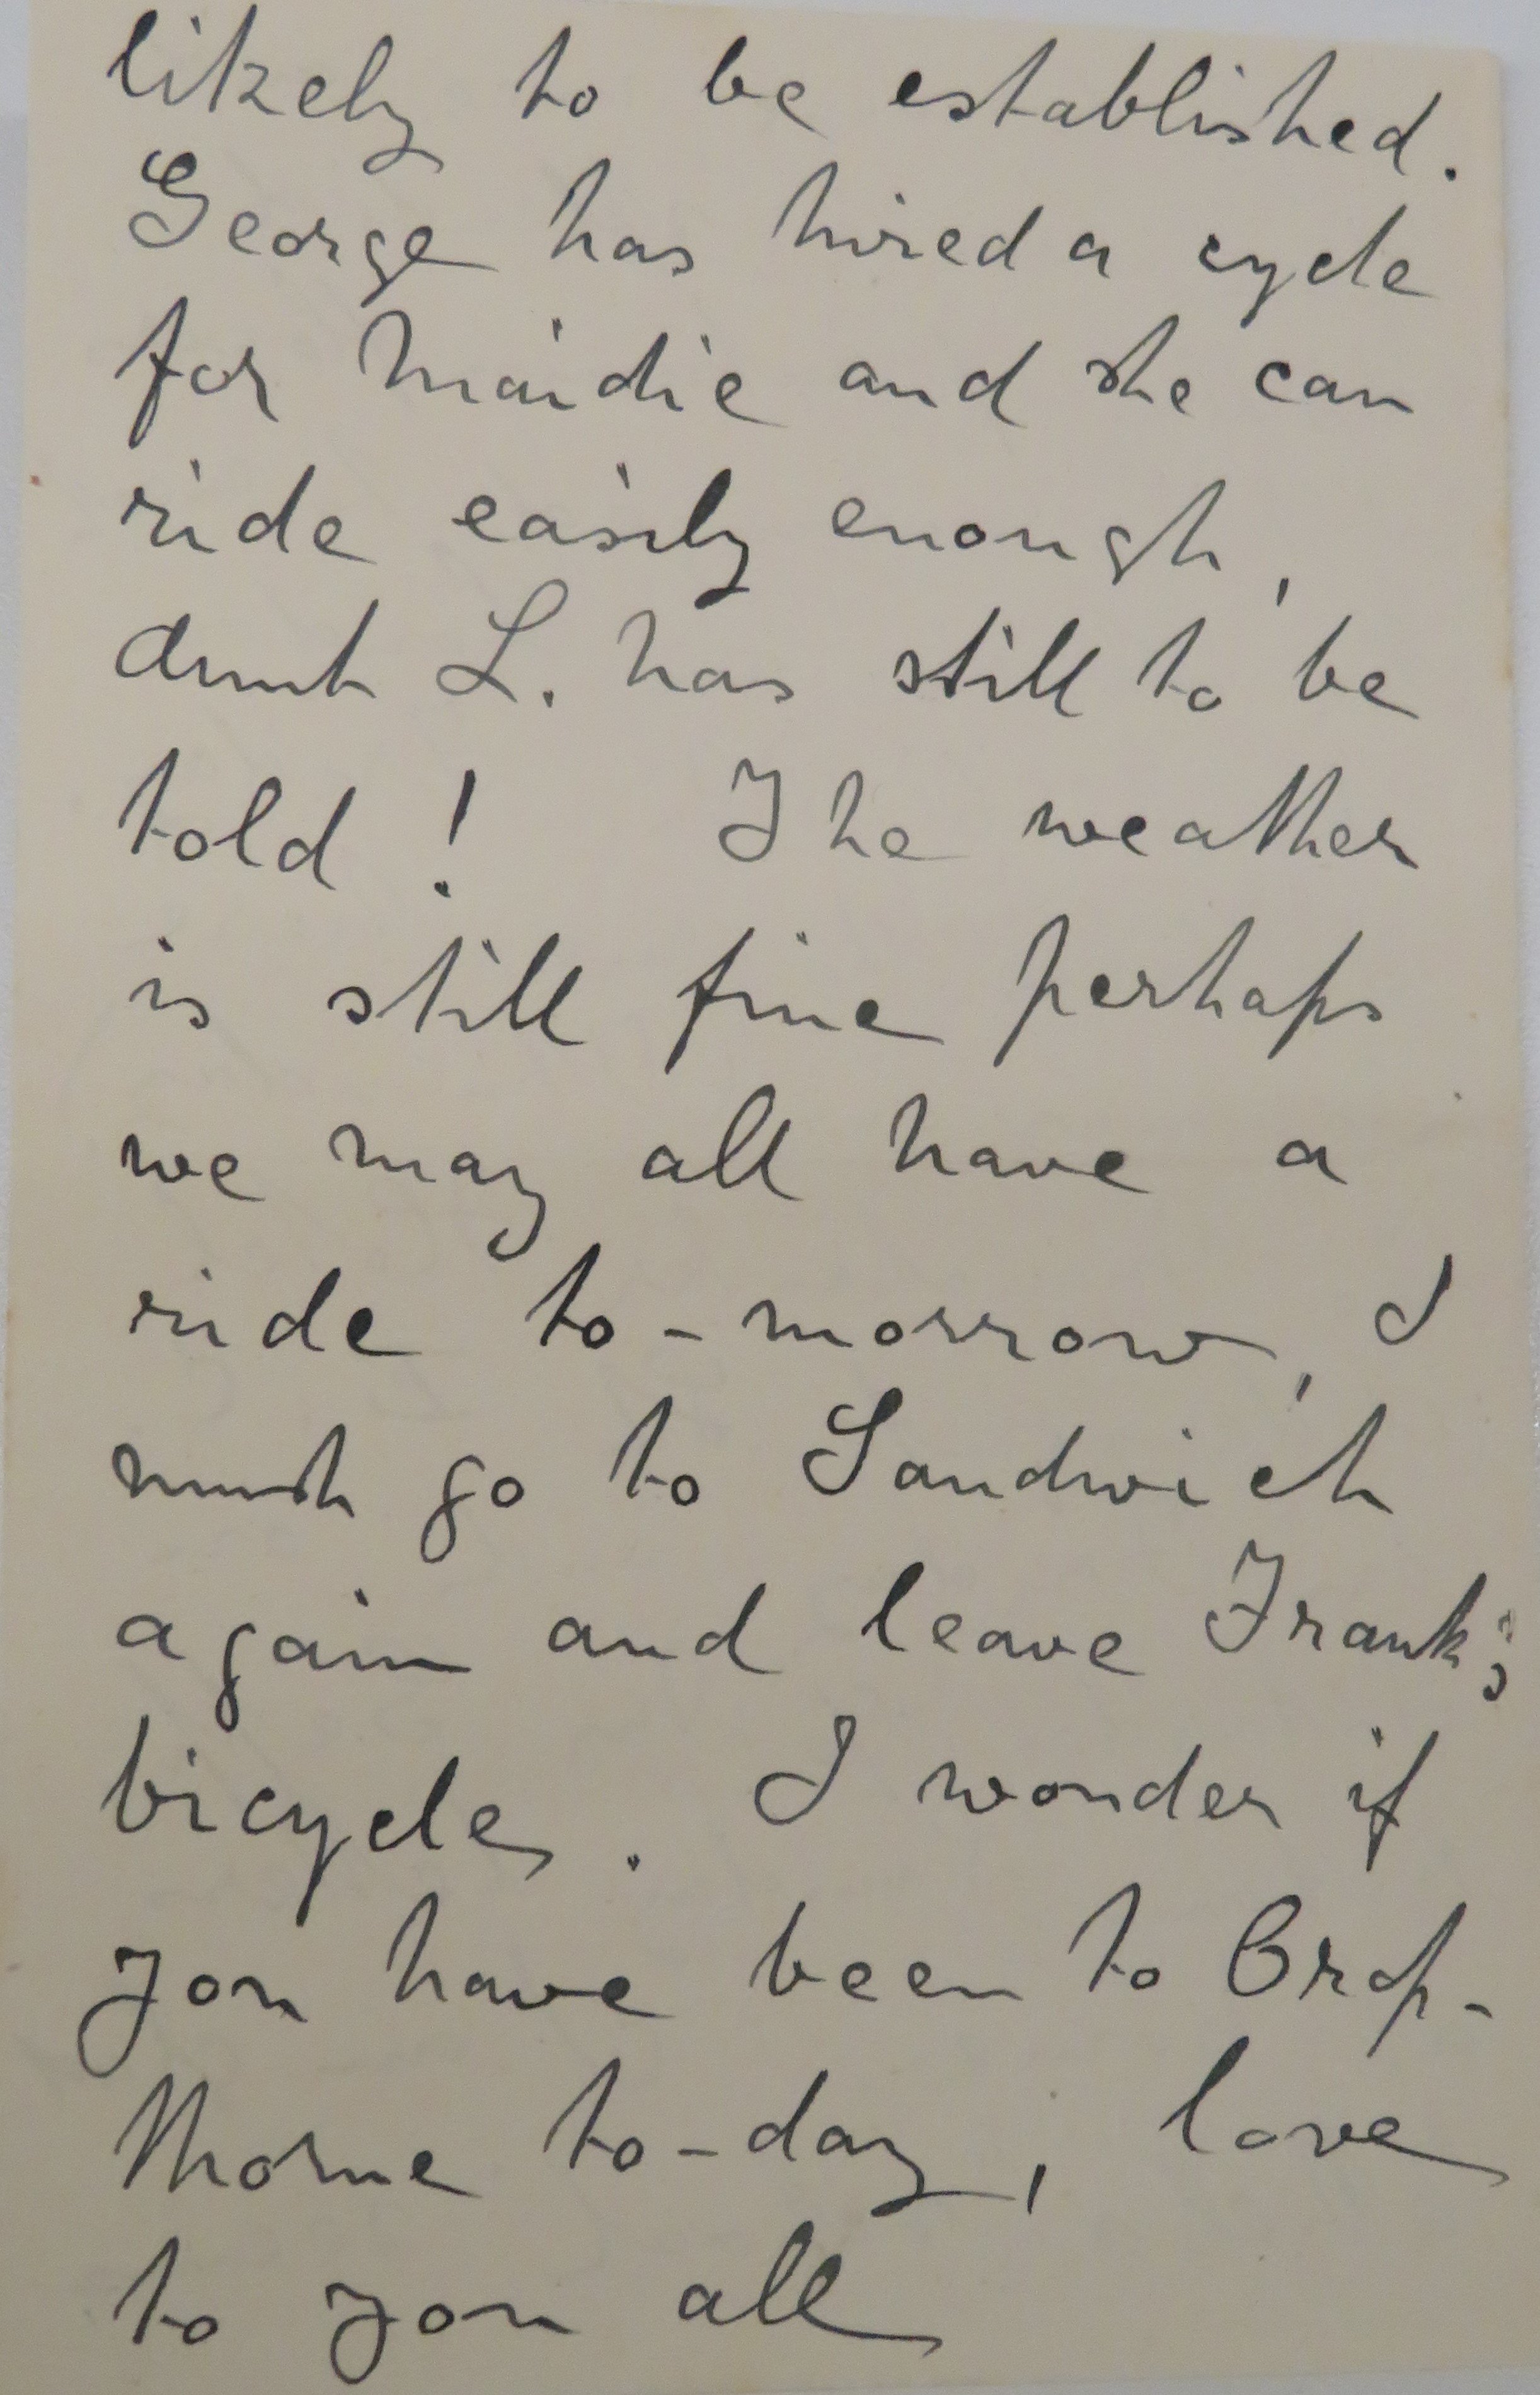 likely to be established.
George has hired a cycle
for Maidie and she can
ride easily enough,
Aunt L. has still to be
told! The weather
is still fine perhaps
we may all have a
ride to-morrow, I
must go to Sandwich
again and leave Frank's
bicycle. I wonder if
you have been to Crop-
thorne to-day, love
to you all